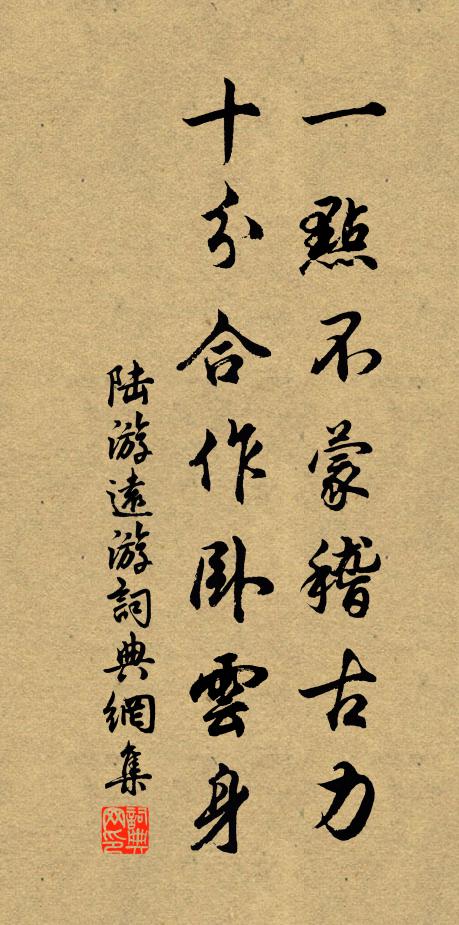 一點不蒙稽古力
十分合作臥雲身
陸游遠游詞典網集
詞典網印